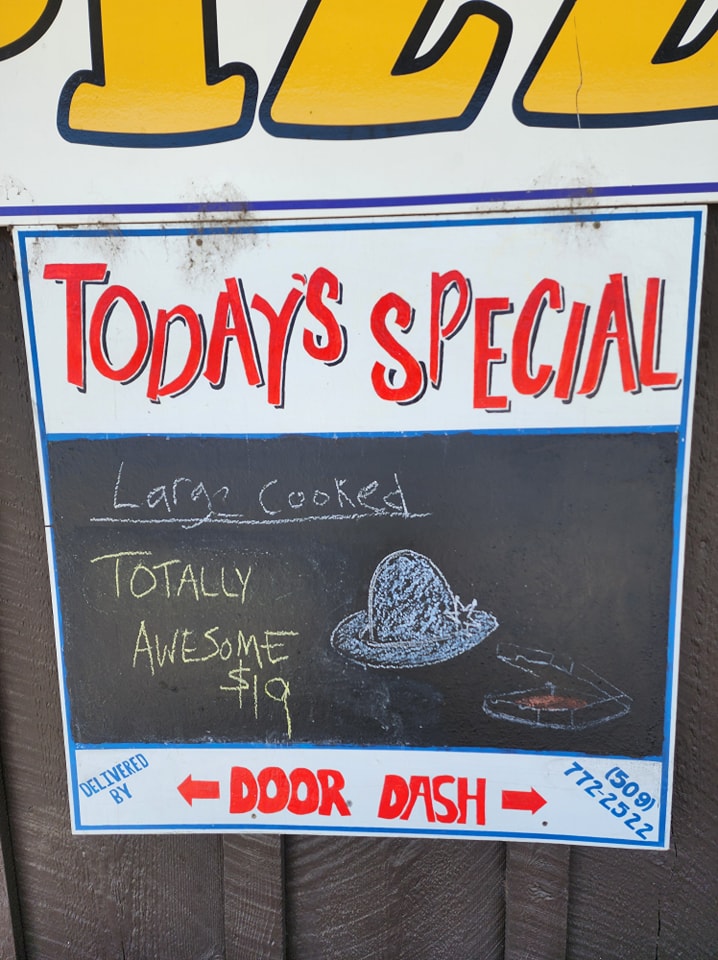 TODAY'S SPECIAL
Large Cooked
TOTALLY
AWESOME
$19
DELIVERED
BY
DOOR DASH
(509)
772-2522